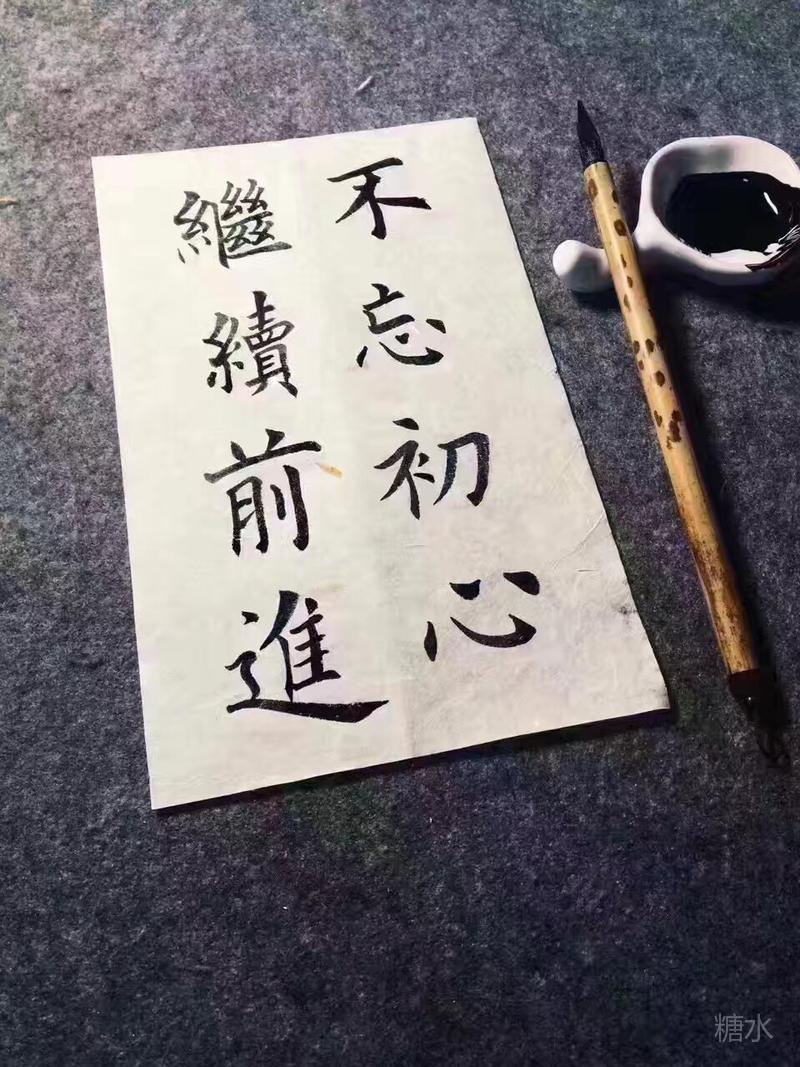 不忘初心
繼續前進
糖水